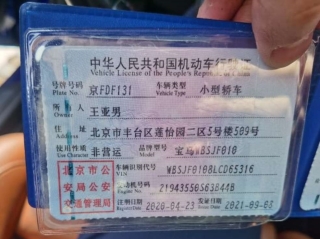 中华人民共和国机动车行驶证
Vehicle License of the People's Republic
号牌号码 京FDF131 车辆类型 小型轿车
Plate No. Vehicle Type
所有人 王亚男
Owner
住址 北京市丰台区莲怡园二区5号楼509号
Address
使用性质 非营运 品牌型号 宝马WBSJF010
Use Character Model
北京市公安局公安交通管理局
车辆识别代号 WBSJF0108LCD65316
VIN
发动机号码 21943550S63B44B
Engine No.
注册日期 2020-04-23 发证日期 2021-09-08
Register Date Issue Date